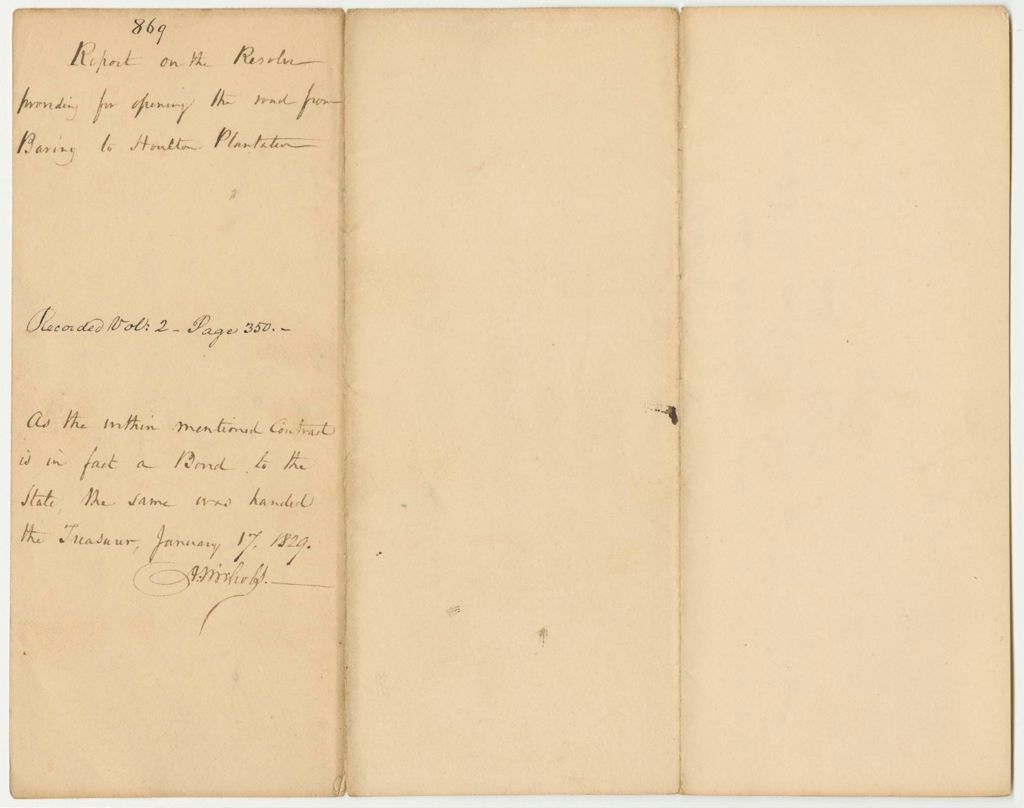 869
Report on the Resolve
providing for opening the road from
Baring to Houlton Plantation
Recorded Vol: 2 - Page 350. -
As the within mentioned Contract
is in fact a Bond to the
State, the same was handed
the Treasurer, January 17. 1829.